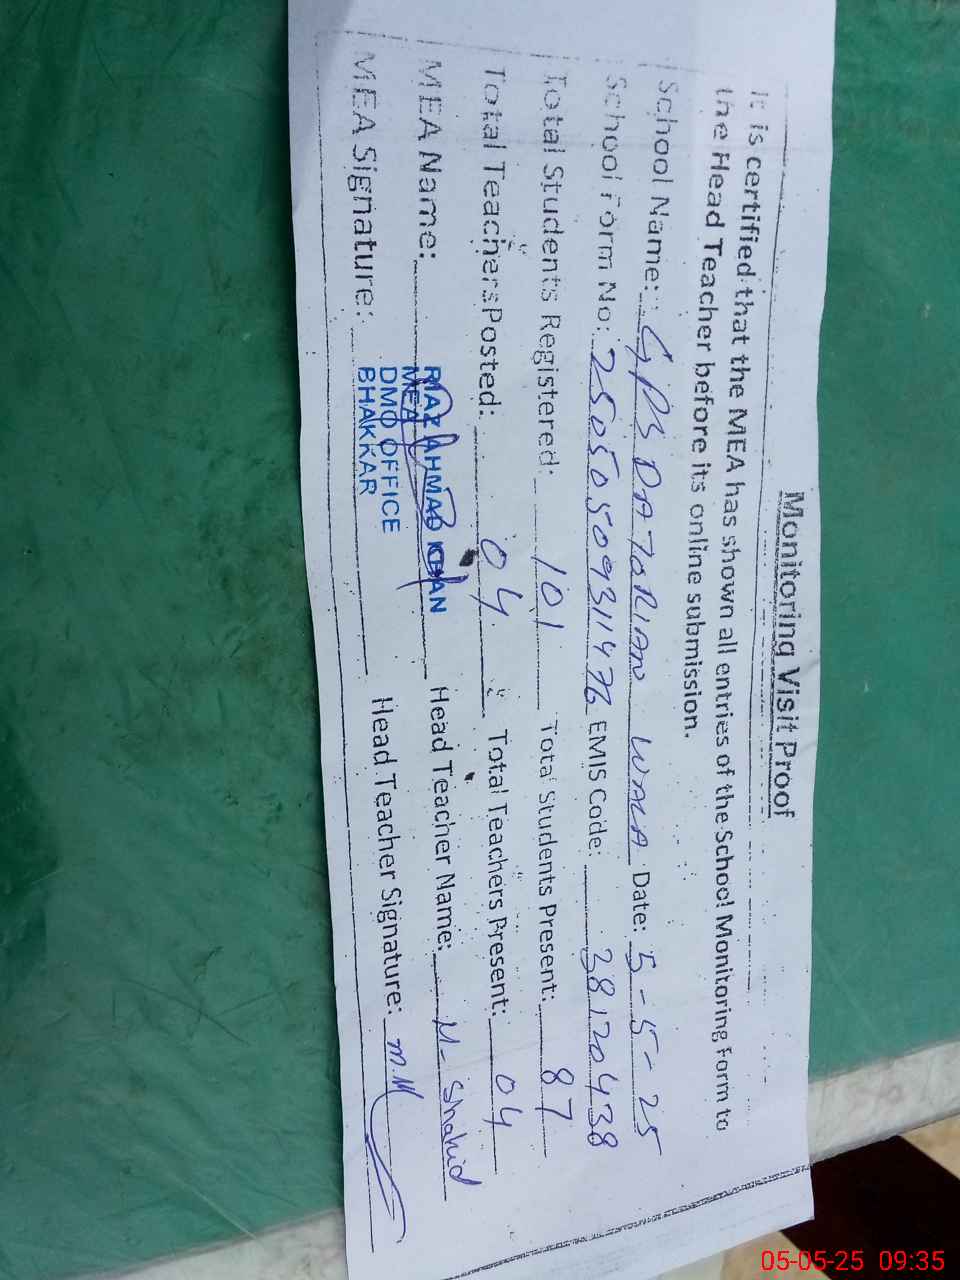 Monitoring Visit Proof
It is certified that the MEA has shown all entries of the School Monitoring Form to
the Head Teacher before its online submission.
School Name: GPS DATORIAN WALA Date: 5-5-25
School Form No: 25050509311476 EMIS Code: 38120438
Total Students Registered: 101 Total Students Present: 87
Total Teachers Posted: 04 Total Teachers Present: 04
MEA Name: RIAZ AHMAD KHAN Head Teacher Name: M- Shahid
MEA
DMO OFFICE
BHAKKAR
MEA Signature: Head Teacher Signature:
05-05-25 09:35